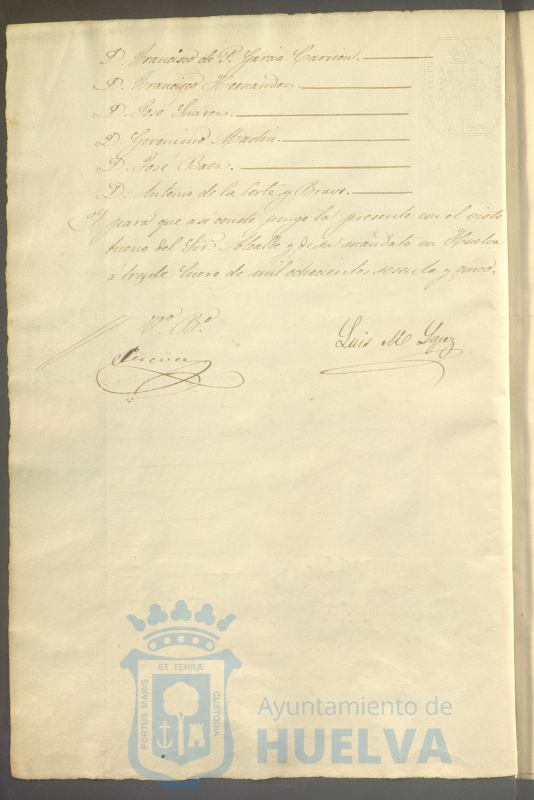 D. Francisco de P. Garcia Carrion.
D. Francisco Hernandez.
D. José Suarez.
D. Geronimo Martin.
D. José Baez.
D. Antonio de la Corte y Bravo.
Y para que asi conste pongo la presente con el visto
bueno del Sor. Alcalde y de su mandato en Huelva
a tres de Enero de mil ochocientos sesenta y cinco.
Vº. Bº.
Luis M
ET TERRÆ
PORTUS MARIS
CUSTODIA
Ayuntamiento de
HUELVA